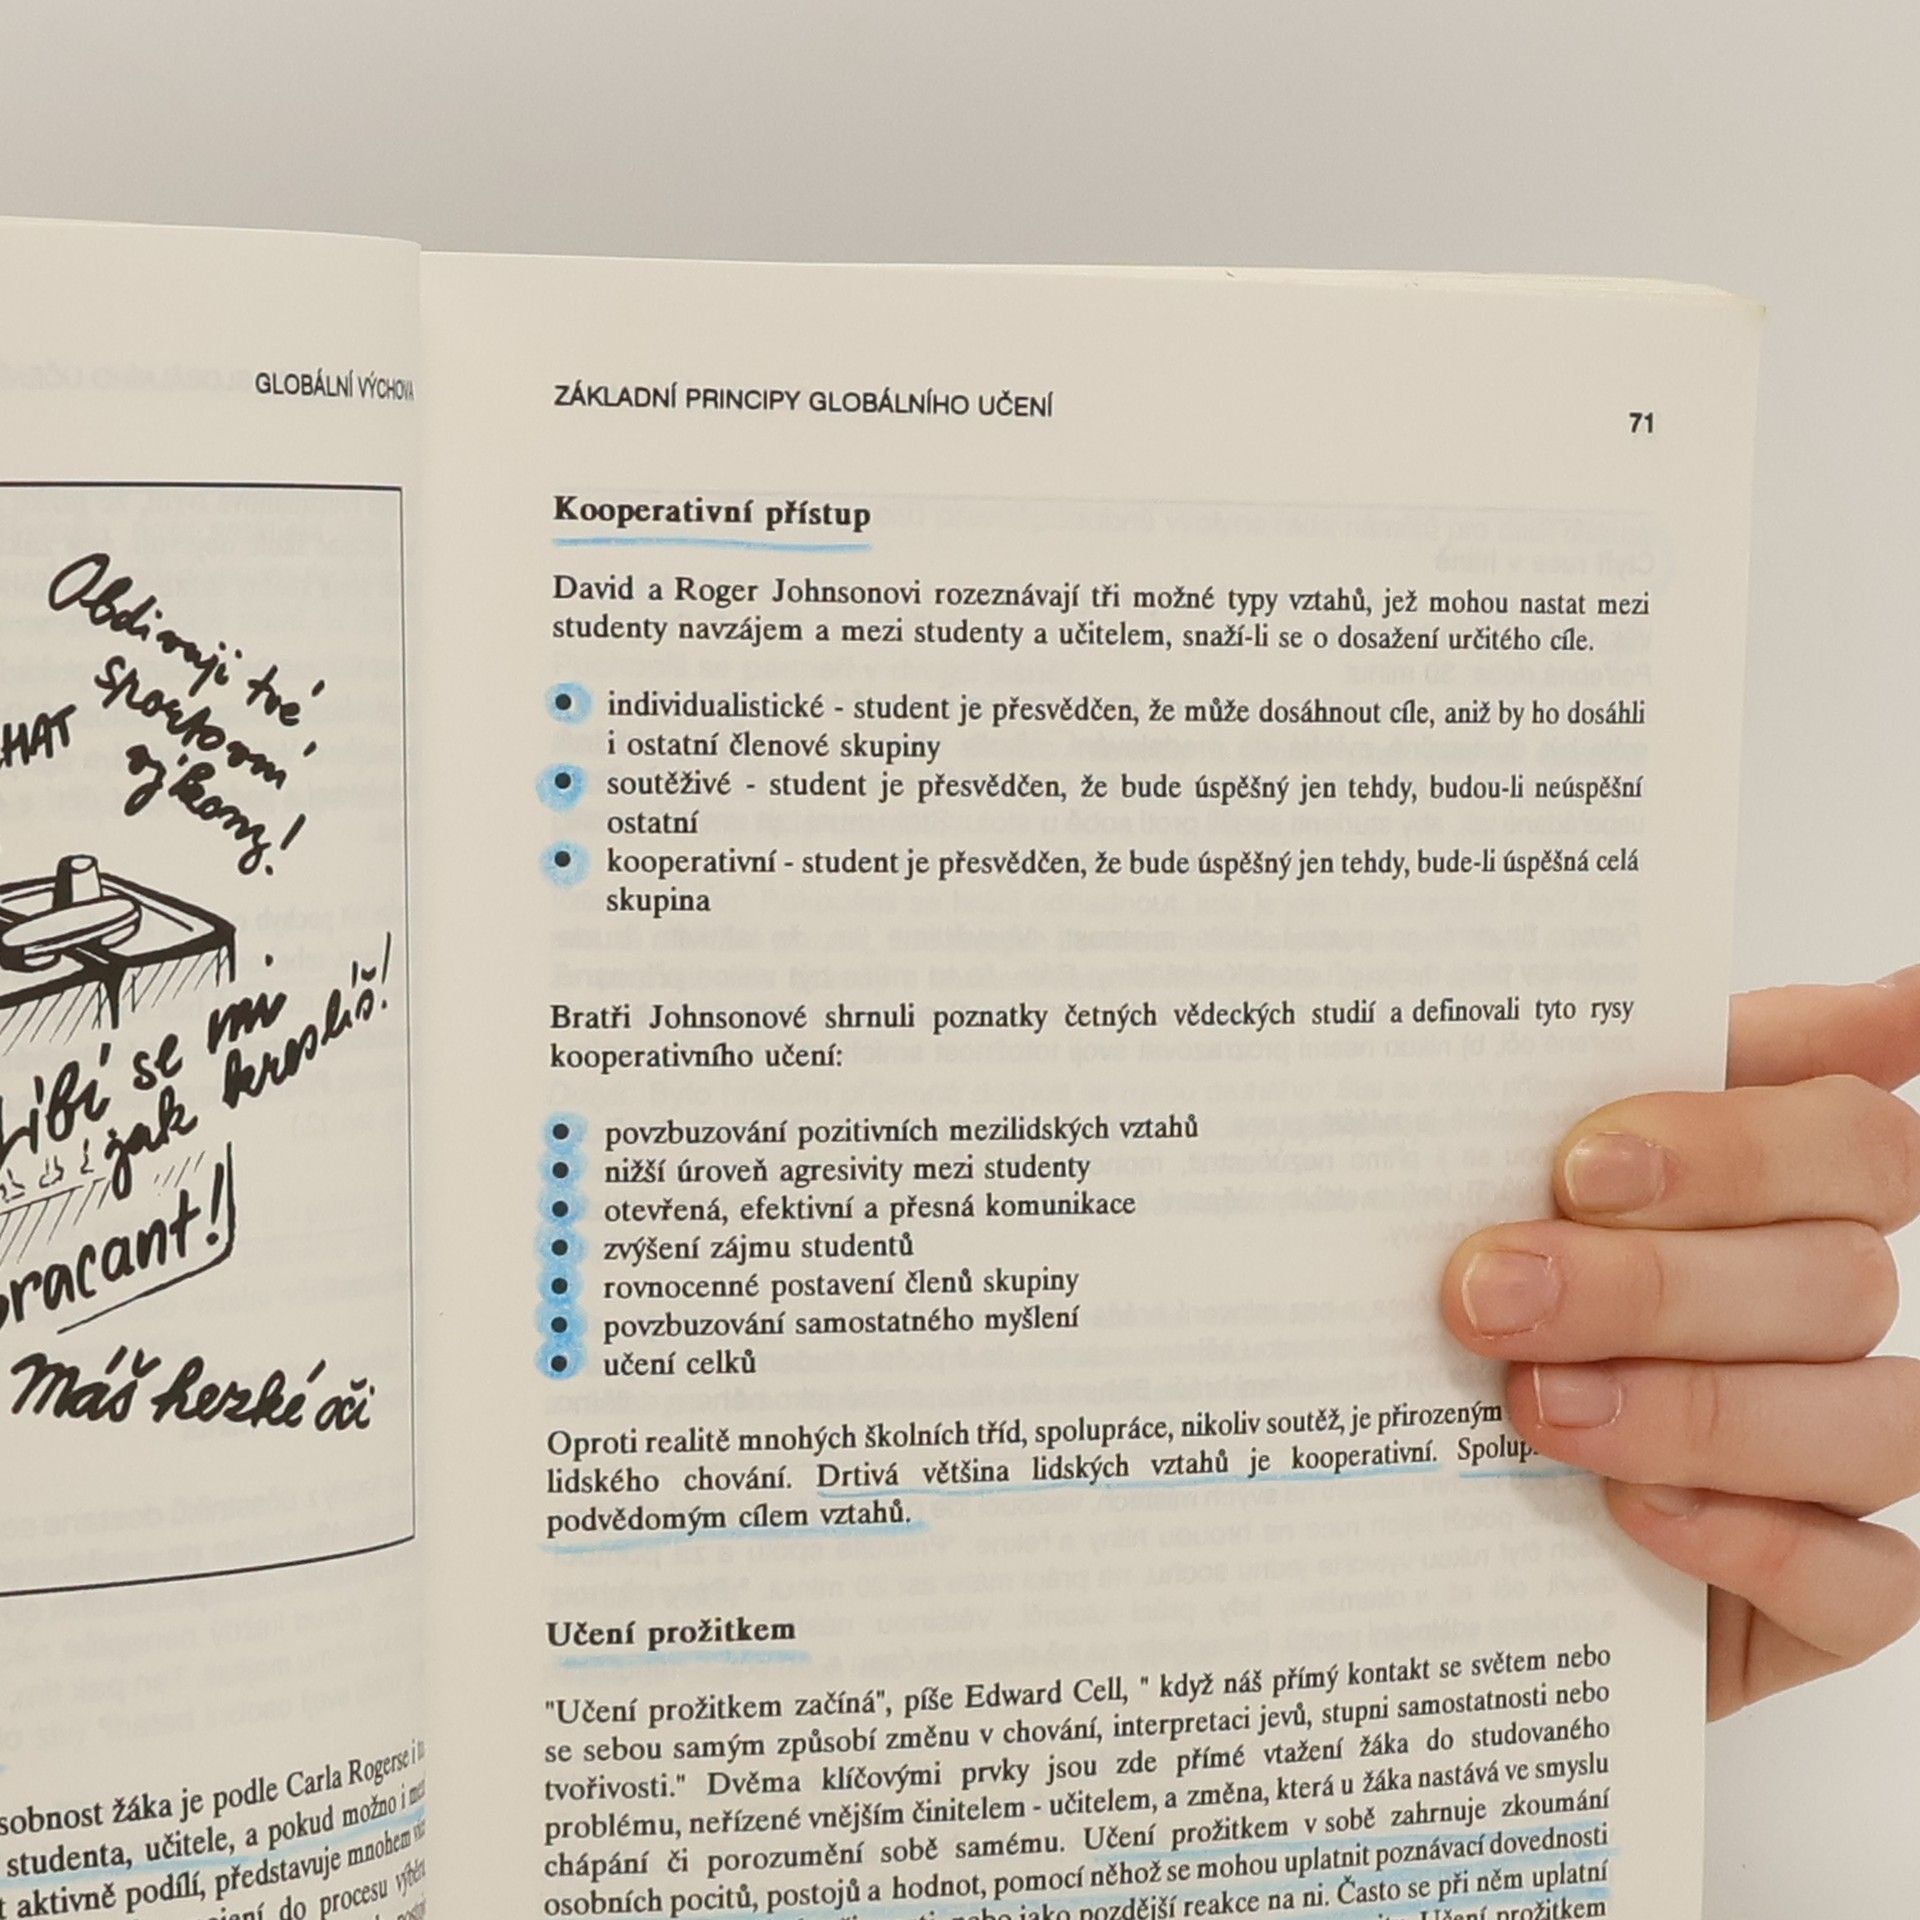 GLOBÁLNÍ VÝCHOVA
Obdivují tvé
sportovní
výkony!
Líbí se mi
jak kreslíš!
Máš hezké oči
sobnost žáka je podle Carla Rogerse i
studenta, učitele, a pokud možno i
aktivně podílí, představuje mnohem
do procesu
ZÁKLADNÍ PRINCIPY GLOBÁLNÍHO UČENÍ
71
Kooperativní přístup
David a Roger Johnsonovi rozeznávají tři možné typy vztahů, jež mohou nastat mezi
studenty navzájem a mezi studenty a učitelem, snaží-li se o dosažení určitého cíle.
• individualistické - student je přesvědčen, že může dosáhnout cíle, aniž by ho dosáhli
i ostatní členové skupiny
• soutěživé - student je přesvědčen, že bude úspěšný jen tehdy, budou-li neúspěšní
ostatní
• kooperativní - student je přesvědčen, že bude úspěšný jen tehdy, bude-li úspěšná celá
skupina
Bratři Johnsonové shrnuli poznatky četných vědeckých studií a definovali tyto rysy
kooperativního učení:
• povzbuzování pozitivních mezilidských vztahů
• nižší úroveň agresivity mezi studenty
• otevřená, efektivní a přesná komunikace
• zvýšení zájmu studentů
• rovnocenné postavení členů skupiny
• povzbuzování samostatného myšlení
• učení celků
Oproti realitě mnohých školních tříd, spolupráce, nikoliv soutěž, je přirozeným
lidského chování. Drtivá většina lidských vztahů je kooperativní.
podvědomým cílem vztahů.
Učení prožitkem
"Učení prožitkem začíná", píše Edward Cell, " když náš přímý kontakt se světem nebo
se sebou samým způsobí změnu v chování, interpretaci jevů, stupni samostatnosti nebo
tvořivosti." Dvěma klíčovými prvky jsou zde přímé vtažení žáka do studovaného
problému, neřízené vnějším činitelem - učitelem, a změna, která u žáka nastává ve smyslu
chápání či porozumění sobě samému. Učení prožitkem v sobě zahrnuje zkoumání
osobních pocitů, postojů a hodnot, pomocí něhož se mohou uplatnit poznávací dovednosti
nebo jako pozdější reakce na ni. Často se při něm uplatní
Učení prožitkem